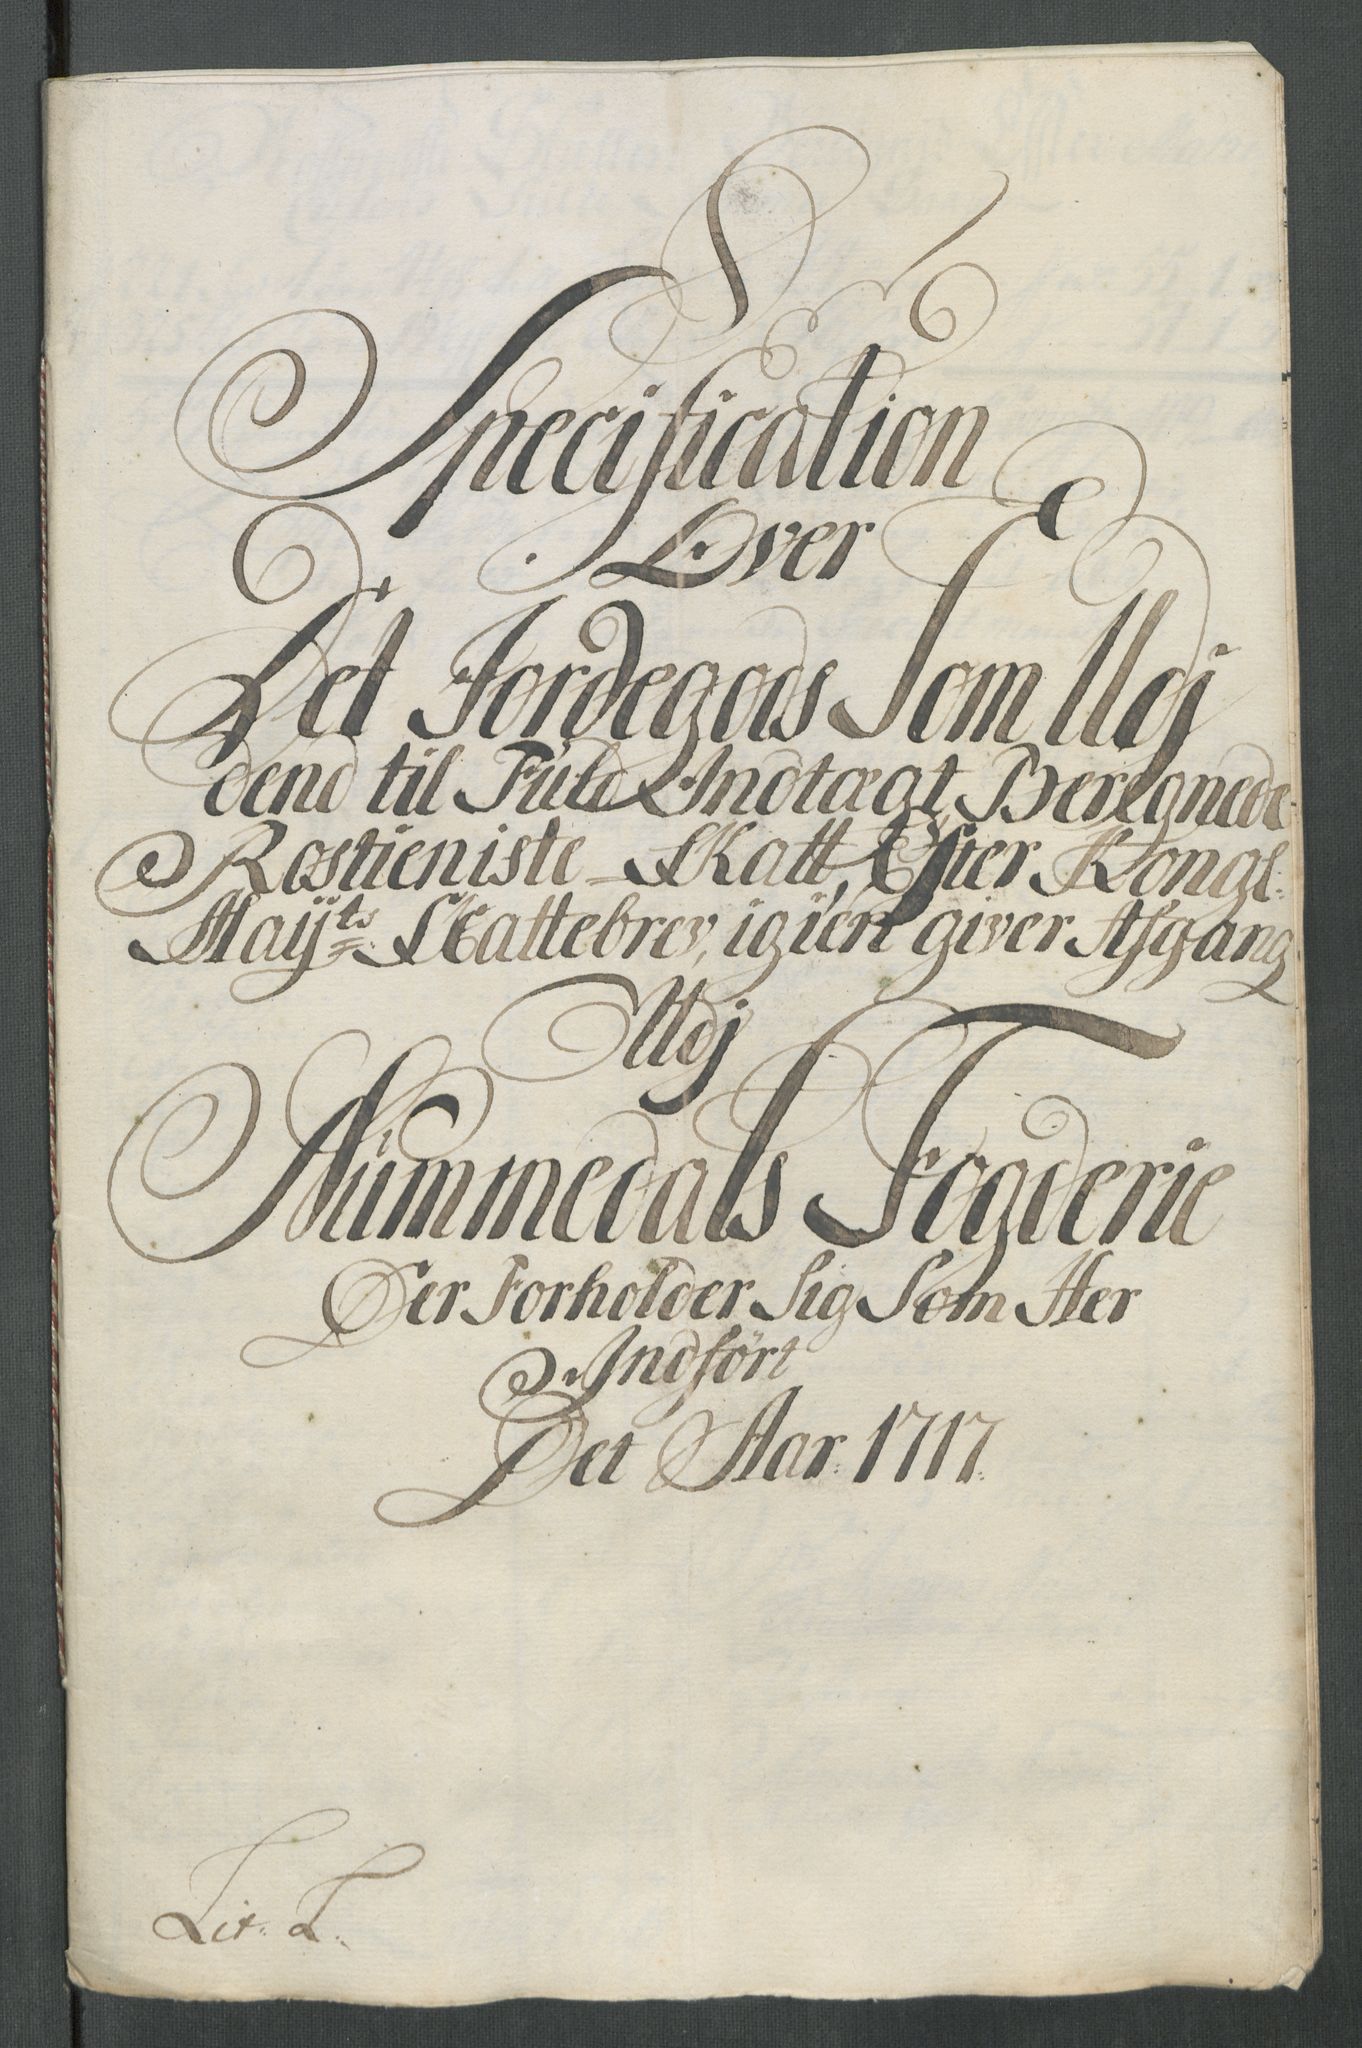 Specification
Over
Det Jordegods Som Udj
dend til Fuld Indtægt Beregnede
Rostieniste Skatt, Efter Kongl:
Mayts Skattebrev, igien giver Afgang
Udj
Nummedals Fogderie
Der Forholder Sig Som Her
Indført
Det Aar 1717.
Lit: L.